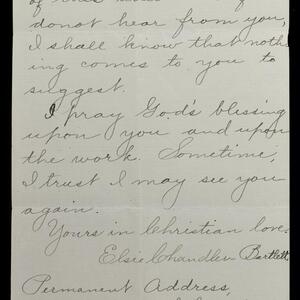 donot hear from you,
I shall know that noth-
ing comes to you to
suggest.
I pray God's blessing
upon you and upon
the work. Sometime,
I trust I may see you
again.
Yours in Christian love.
Elsie Chandler Bartlett
Permanent Address